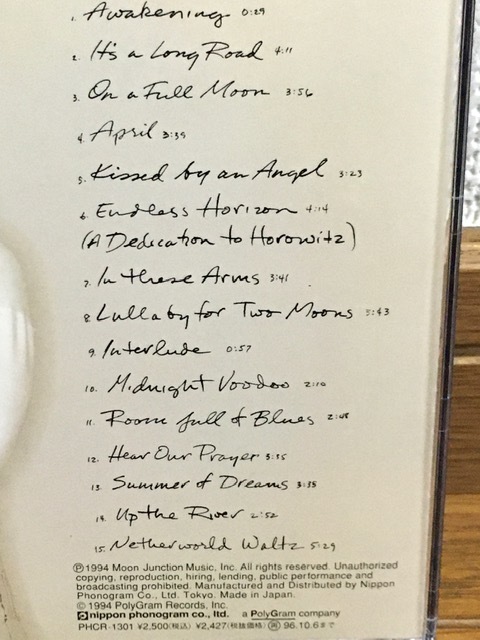 1. Awakening 0:29
2. It's a Long Road 4:11
3. On a Full Moon 3:56
4. April 3:39
5. Kissed by an Angel 3:23
6. Endless Horizon 4:14
(A Dedication to Horowitz)
7. In these Arms 3:41
8. Lullaby for Two Moons 5:43
9. Interlude 0:57
10. Midnight Voodoo 2:10
11. Room full of Blues 2:48
12. Hear Our Prayer 3:35
13. Summer of Dreams 3:35
14. Up the River 2:52
15. Netherworld Waltz 5:29
Ⓟ1994 Moon Junction Music, Inc. All rights reserved. Unauthorized
copying, reproduction, hiring, lending, public performance and
broadcasting prohibited. Manufactured and Distributed by Nippon
Phonogram Co., Ltd. Tokyo. Made in Japan.
© 1994 PolyGram Records, Inc.
nippon phonogram co., ltd. a PolyGram company
PHCR-1301 ¥2,500(税込) ¥2,427(税抜価格) 96.10.6まで